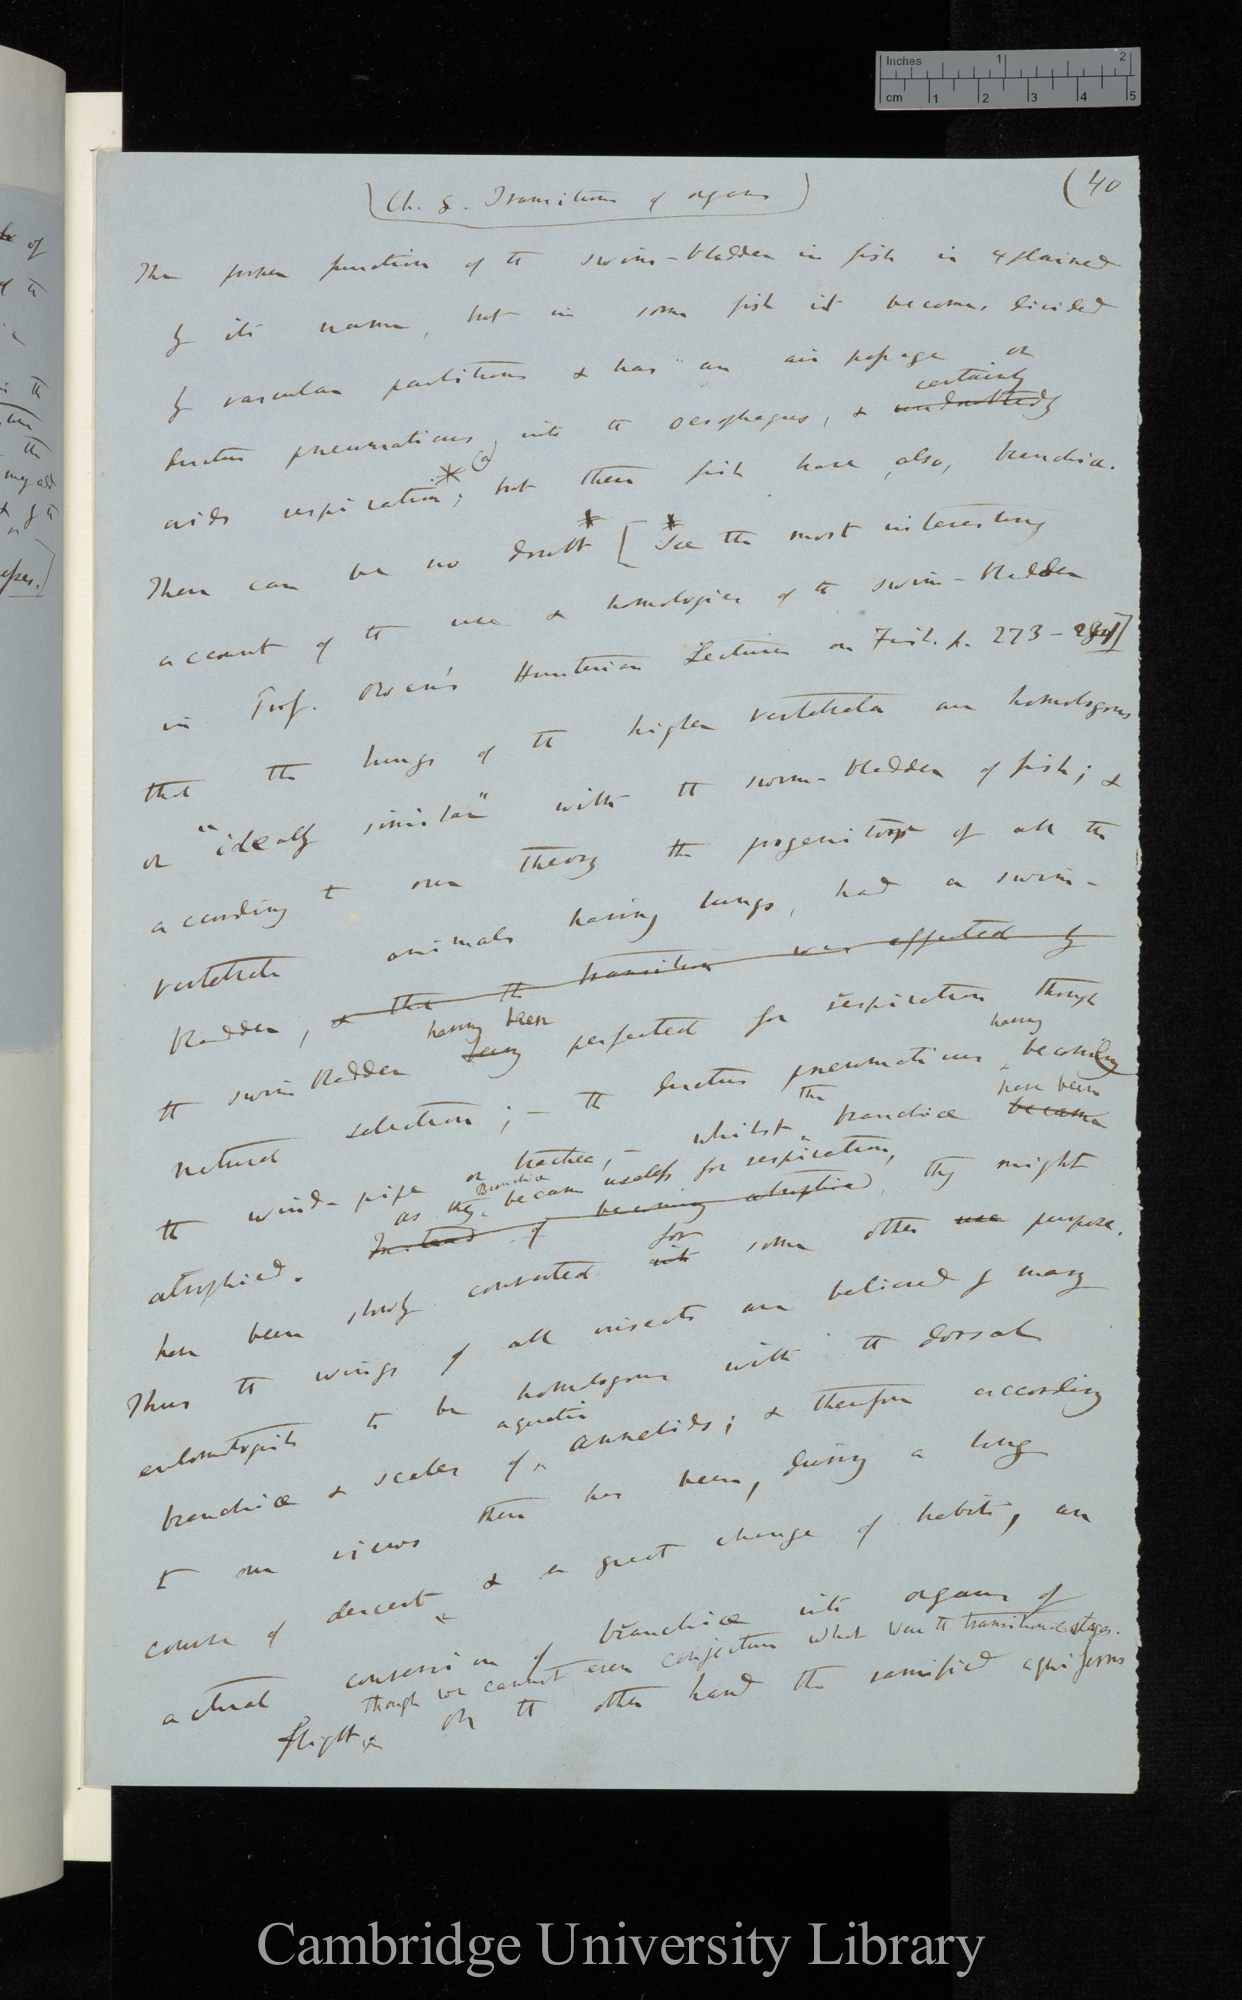 Inches 1 2
cm 1 2 3 4 5
(40
(Ch. 8. Transitions of organs)
The proper function of the swim-bladder in fish is explained
by its name, but in some fish it becomes divided
by vascular partitions & has an air passage or
certainly
ductus pneumaticus, into the oesophagus, & undoubtedly
(a)
aids respiration*; but these fish have also, branchiæ.
There can be no doubt* [*See the most interesting
account of the use & homologies of the swim-bladder
in Prof. Owen's Hunterian Lectures on Fish. p. 273 - 281]
that the lungs of the higher vertebrata are homologous
or "ideally similar" with the swim-bladder of fish; &
according to our theory the progenitor of all the
vertebrate animals having lungs, had a swim-
bladder, & that the transition was effected by
having been
the swim bladder being perfected for respiration through
having
natural selection; – the ductus pneumaticus becoming
the have been
the wind-pipe or trachea, – whilst branchiæ became
Branchiæ
as they became useless for respiration,
atrophied. Instead of becoming atrophied, they might
for
have been slowly converted into some other use purpose.
Thus the wings of all insects are believed by many
entomologists to be homologous with the dorsal
aquatic
branchiæ & scales of annelids; & therefore according
to our views there has been, during a long
course of descent & a great change of habits, an
actual conversion of branchiæ into organs of
though we cannot even conjecture what were the transitional stages.
flight. & On the other hand the ramified aquiferous
of
Cambridge University Library